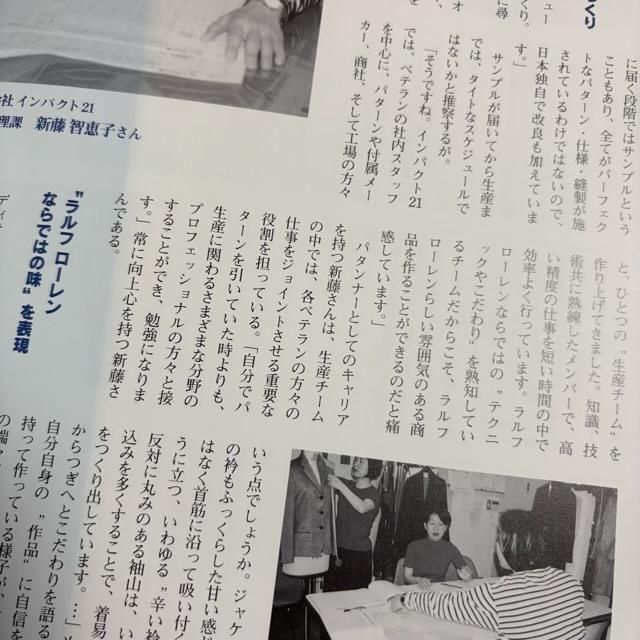 くり
ュー
に尋
り。
オ
に届く段階ではサンプルという
こともあり、全てがパーフェク
トなパターン・仕様・縫製が施
されているわけではないので、
日本独自で改良も加えていま
す。」
サンプルが届いてから生産ま
では、タイトなスケジュールで
はないかと推察するが。
「そうですね。インパクト21
では、ベテランの社内スタッフ
を中心に、パターンや付属メー
カー、商社、そして工場の方々
社 インパクト21
理課 新藤 智恵子さん
と、ひとつの〝生産チーム〟を
作り上げてきました。知識、技
術共に熟練したメンバーで、高
い精度の仕事を短い時間の中で
効率よく行っています。ラルフ
ローレンならではの〝テクニ
ックやこだわり〟を熟知してい
るチームだからこそ、ラルフ
ローレンらしい雰囲気のある商
品を作ることができるのだと痛
感しています。」
パタンナーとしてのキャリア
を持つ新藤さんは、生産チーム
の中では、各ベテランの方々の
仕事をジョイントさせる重要な
役割を担っている。「自分でパ
ターンを引いていた時よりも、
生産に関わるさまざまな分野の
プロフェッショナルの方々と接
することができ、勉強になりま
す。」常に向上心を持つ新藤さ
んである。
〝ラルフ ローレン
ならではの味〟を表現
ディテ
いう点でしょうか。ジャケ
の衿もふっくらした甘い感じ
はなく首筋に沿って吸い付く
うに立つ、いわゆる〝辛い衿
反対に丸みのある袖山は、い
込みを多くすることで、着易
をつくり出しています。…」
からつぎへとこだわりを語る
自分自身の〝作品〟に自信を
持って作っている様子が、
の端